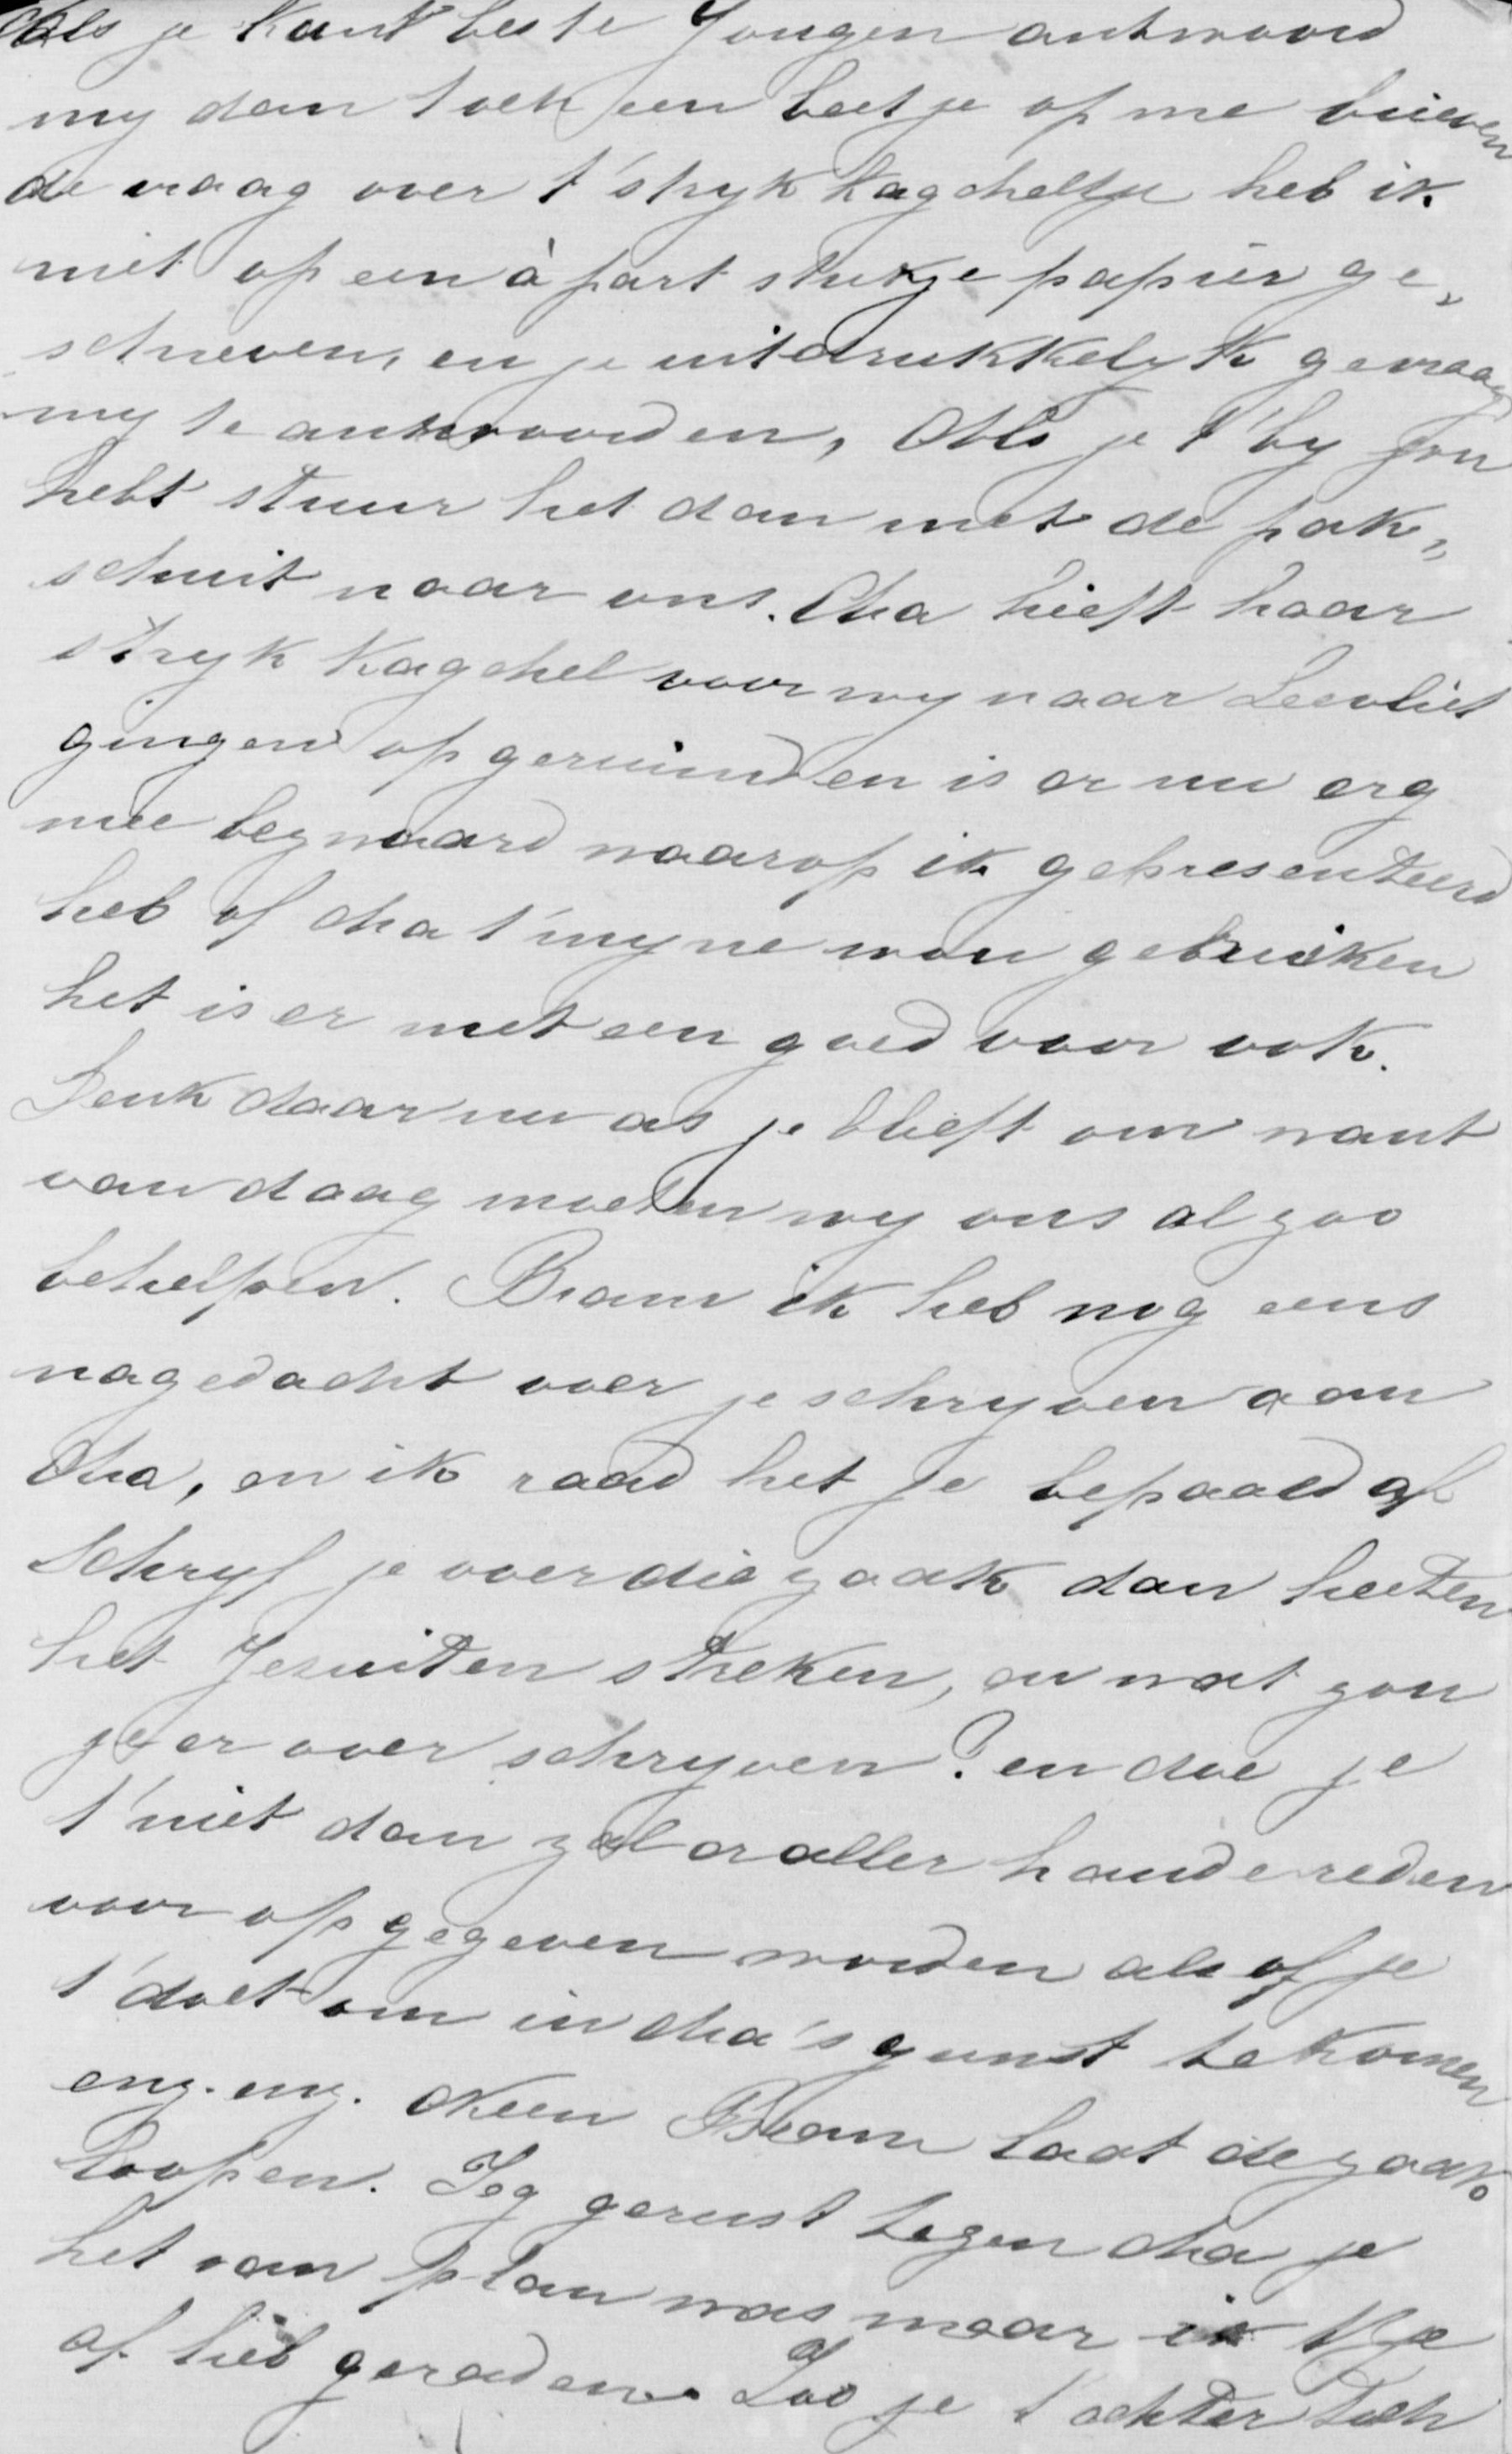 Als je kunt beste Jongen antwoord
my dan toch een beetje op me brieven
de vraag over t'stryk kagcheltje heb ik
niet op een àpart stukje papier ge„
schreven, en je uitdrukkelyk gevraagd
my te antwoorden, Als je t'by jou
hebt stuur het dan met de pak„
schuit naar ons. Ma heeft haar
stryk kagchel voor wy naar Leevliet
gingen opgeruimd en is er nu erg
mee bezwaard waarop ik gepresenteerd
heb of Ma t'myne wou gebruiken
het is er met een goed voor ook.
Denk daar nu as je blieft om want
van daag moeten wy ons al zoo
behelpen. Bram ik heb nog eens
nagedacht over je schryven aan
Ma, en ik raad het je bepaald af
Schryf je over die zaak dan heeten
het Jesuiten streken, en wat zou
je er over schryven? en doe je
t'niet dan zal er aller hande reden
voor opgegeven worden als of je
t'doet om in Ma's gunst te komen
enz. enz. Neen Bram laat de zaak
loopen. Zeg gerust tegen Ma je
het van plan was maar ik t'je
af heb geraden. Zoo je t'achter toch